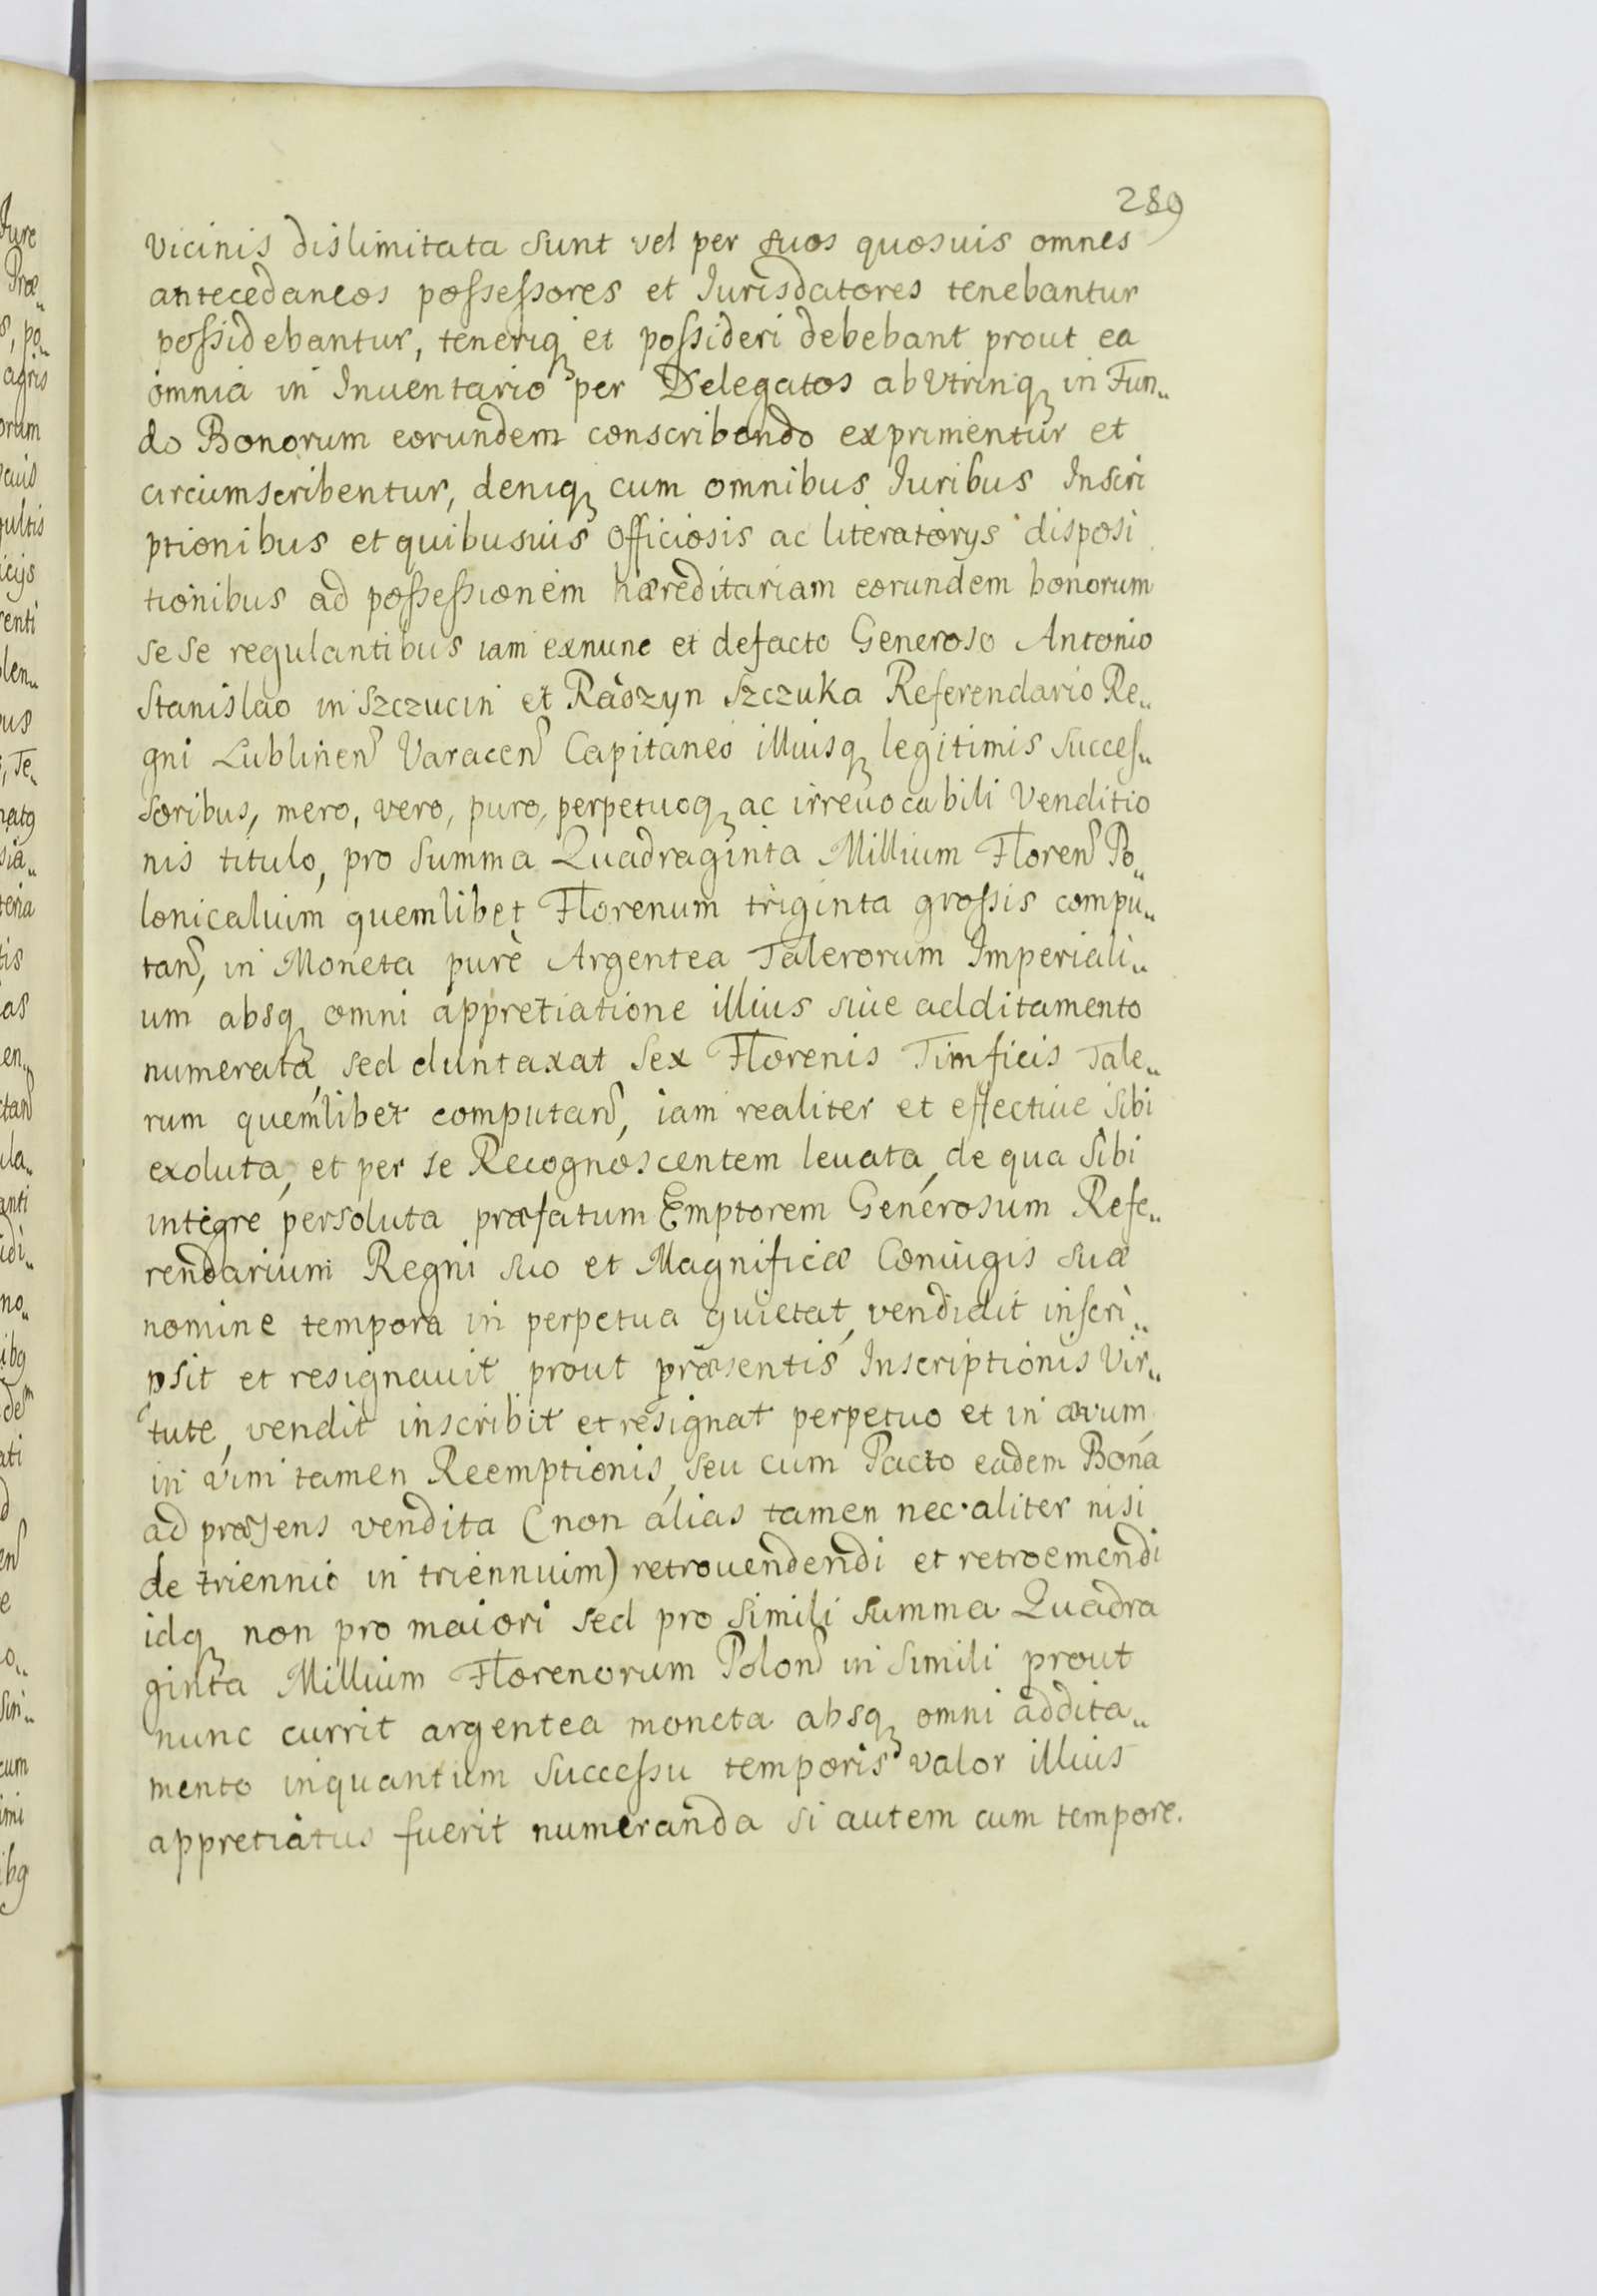 289
vicinis dislimitata sunt vel per suos quosuis omnes
antecedaneos possessores et Iurisdatores tenebantur
possidebantur, teneriq et possideri debebant prout ea
omnia in Inuentario per Delegatos ab Vtrinq in Fun„
do Bonorum eorundem conscribendo exprimentur et
circumscribentur, deniq cum omnibus Iuribus Inscri
ptionibus et quibusuis Officiosis ac literatorys disposi
tionibus ad possessionem hæreditariam eorundem bonorum
sese regulantibus iam exnunc et defacto Generoso Antonio
Stanislao in Szczucin et Raszyn Szczuka Referendario Re„
gni Lublinen Varacen Capitaneo illiusq legitimis succes„
soribus, mero, vero, puro, perpetuoq ac irreuocabili Venditio
nis titulo, pro Summa Quadraginta Millium Floren Po„
lonicalium quemlibet Florenum triginta grossis compu„
tan, in Moneta purè Argentea Talerorum Imperiali„
um absq omni appretiatione illius siue additamento
numerata, sed duntaxat Sex Florenis Timficis Tale„
rum quemlibet computan, iam realiter et effectiue sibi
exoluta, et per se Recognoscentem leuata, de qua sibi
integre persoluta præfatum Emptorem Generosum Refe„
rendarium Regni suo et Magnificæ Coniugis suæ
nomine tempora in perpetua quietat, vendidit inscri„
psit et resignauit prout præsentis Inscriptionis Vir„
tute, vendit inscribit et resignat perpetuo et in ævum,
in vim tamen Reemptionis, seu cum Pacto eadem Bona
ad præsens vendita (non alias tamen nec aliter nisi
de triennio in triennium) retrouendendi et retroemendi
idq non pro maiori sed pro simili summa Quadra
ginta Millium Florenorum Polon in simili prout
nunc currit argentea moneta absq omni addita„
mento inquantum successu temporis valor illius
appretiatus fuerit numeranda si autem cum tempore.